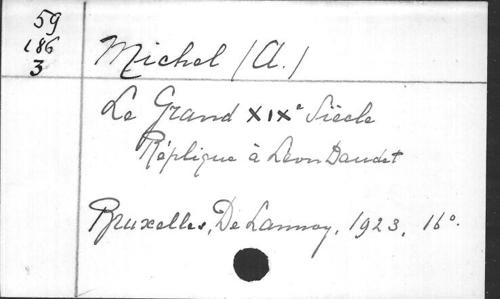 59
186
3
Michel (A.)
Le Grand XIXe Siècle
Réplique à Léon Daudet
Bruxelles, De Lannoy, 1923, 16°.